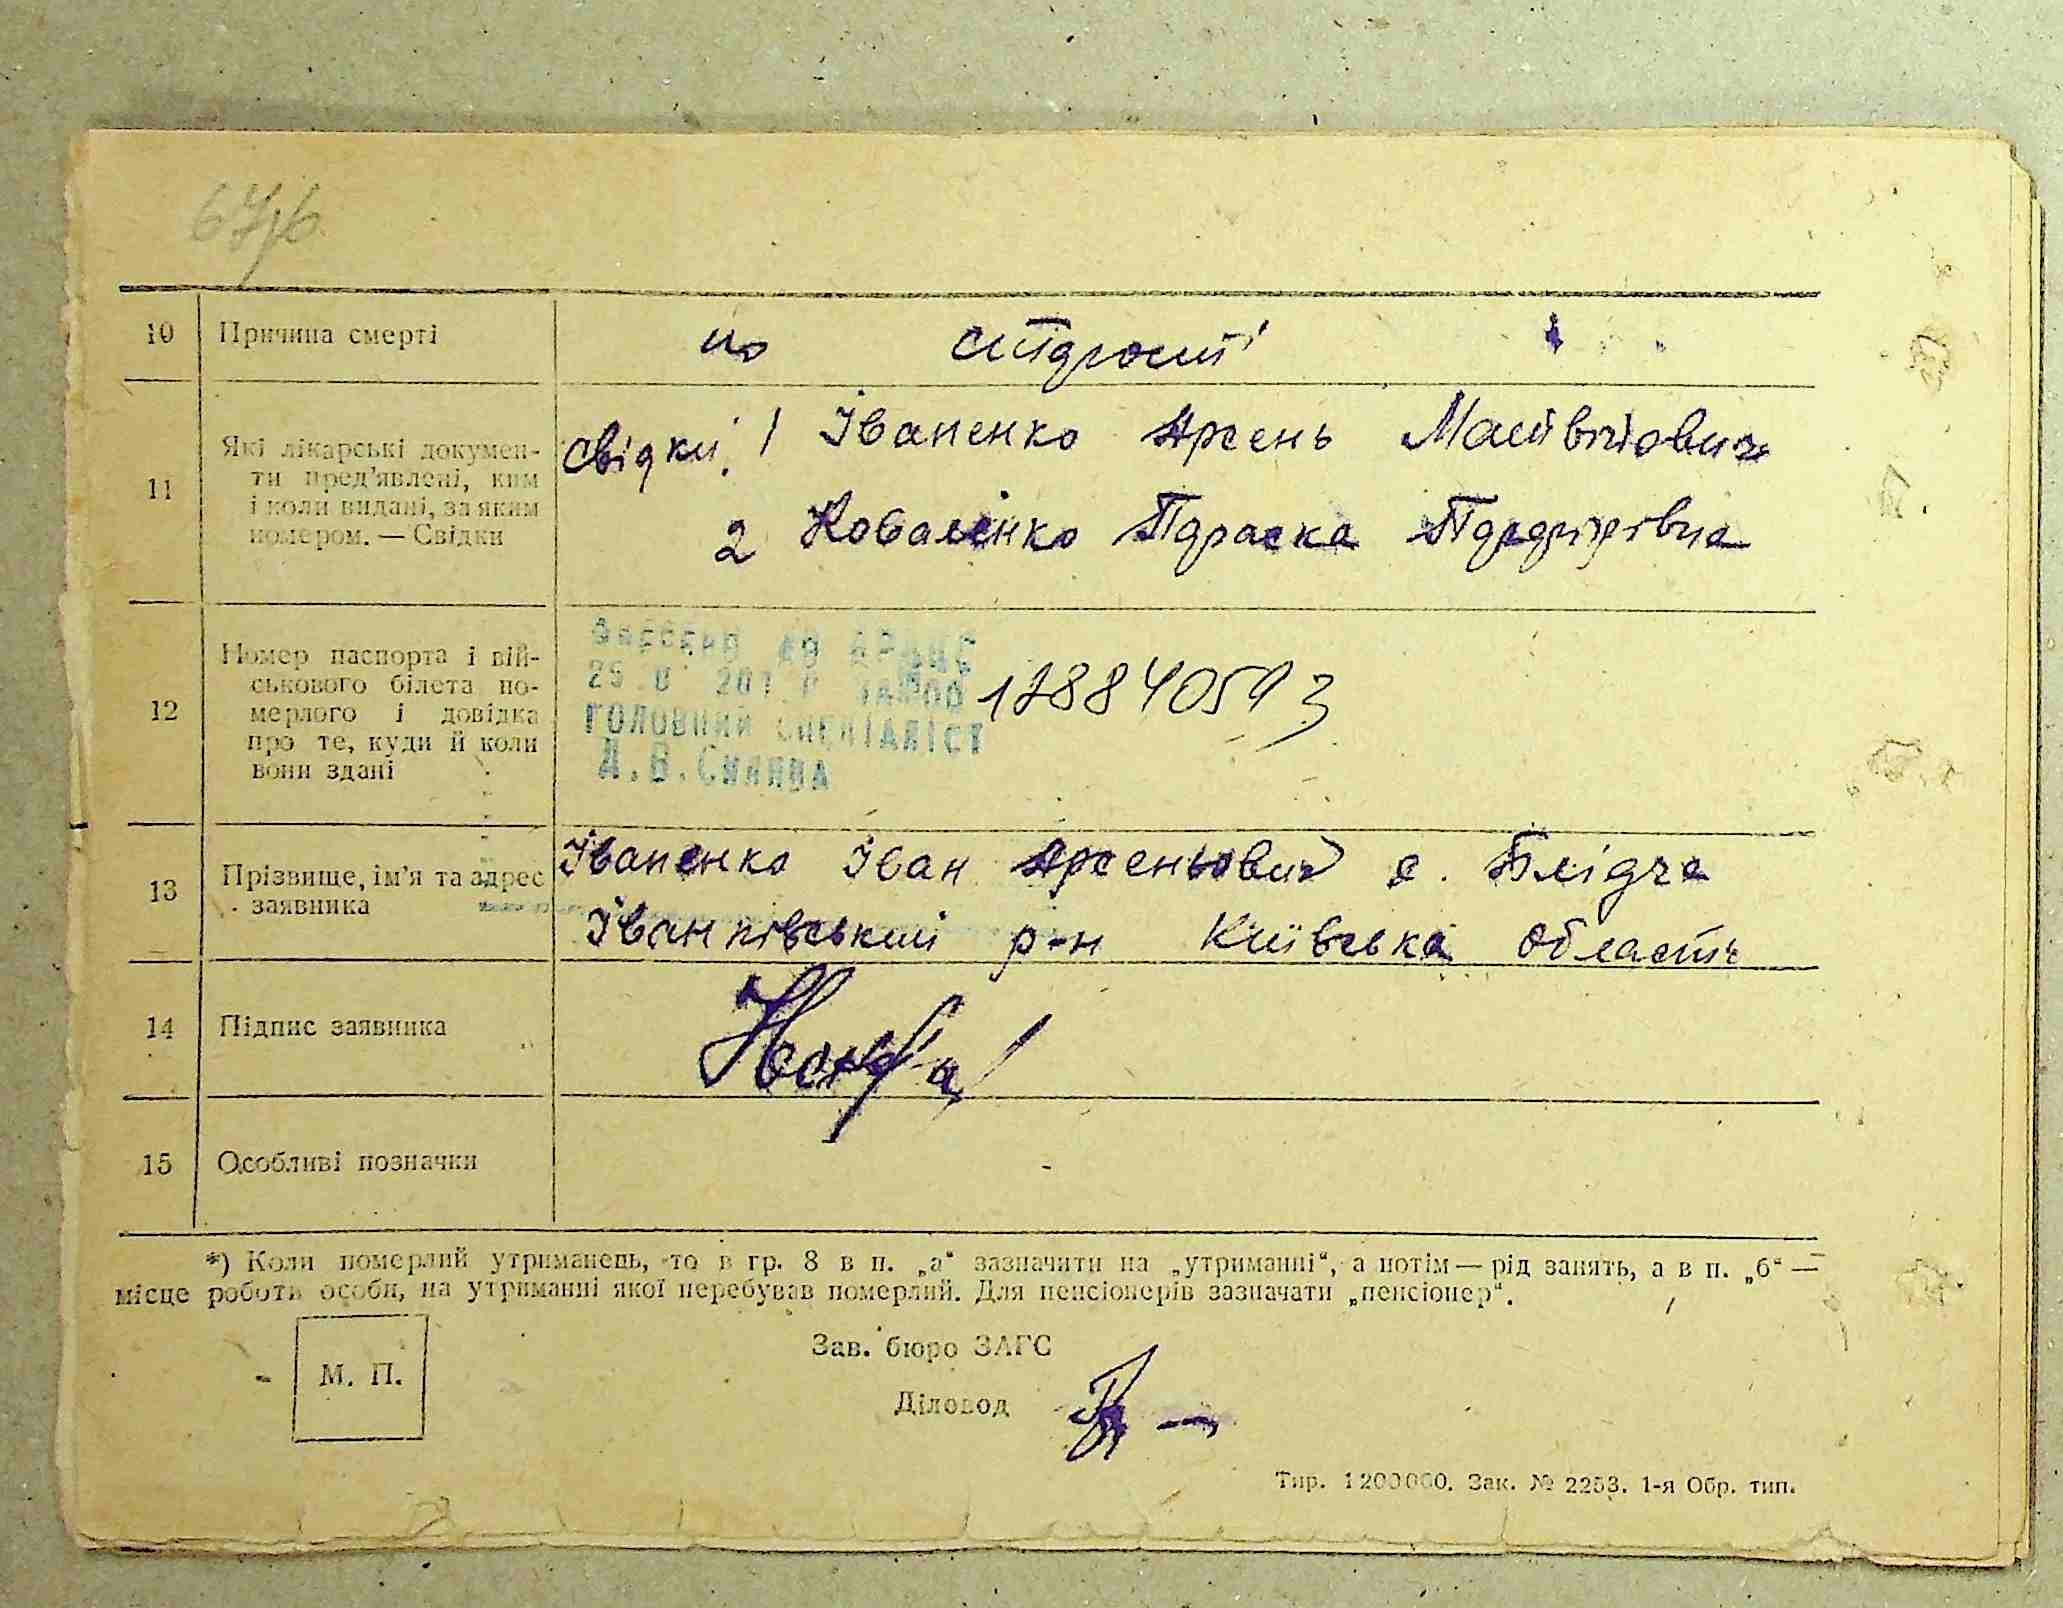 10 Причина смерті по старості
11 Які лікарські докумен-
ти пред'явлені, ким
і коли видані, за яким
номером. — Свідки
Свідки: 1 Іваненко Арсень Матвійович
2 Коваленко Параска
12 Номер паспорта і вій-
ськового білета по-
мерлого і довідка
про те, куди й коли
вони здані
ГОЛОВНИЙ СПЕЦІАЛІСТ
13 Прізвище, ім'я та адрес
заявника
Іваненко Іван Арсеньович с. Блідча
Іванківський р-н Київська область
14 Підпис заявника
15 Особливі позначки
*) Коли померлий утриманець, то в гр. 8 в п. „а“ зазначити на „утриманні“, а потім — рід занять, а в п. „б“ —
місце роботи особи, на утриманні якої перебував померлий. Для пенсіонерів зазначати „пенсіонер“.
М. П.
Зав. бюро ЗАГС
Діловод
Тир. 1200000. Зак. № 2253. 1-я Обр. тип.